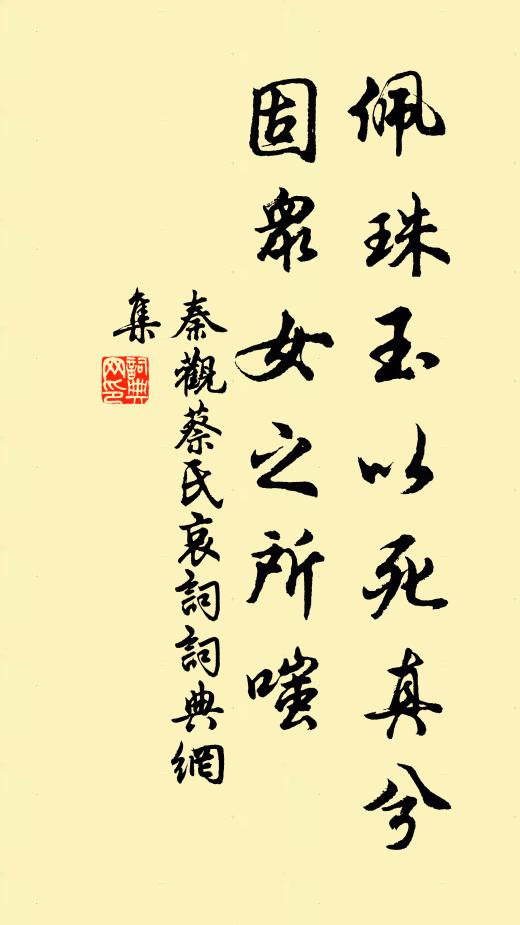 佩珠玉以死真兮
固眾女之所嗤
秦觀蔡氏哀詞詞典網
集
詞典
网印